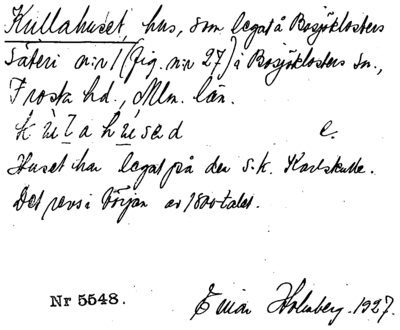 Kullahuset, hus, som legat å Bosjöklosters
säteri n:r 1 (fig. n:r 27) i Bosjöklosters sn.,
Frosta hd., Mlm. län.
e.
Huset har legat på den s.k. Karlskulle.
Det revs i början av 1800-talet.
Nr 5548.
Einar Holmberg. 1927.